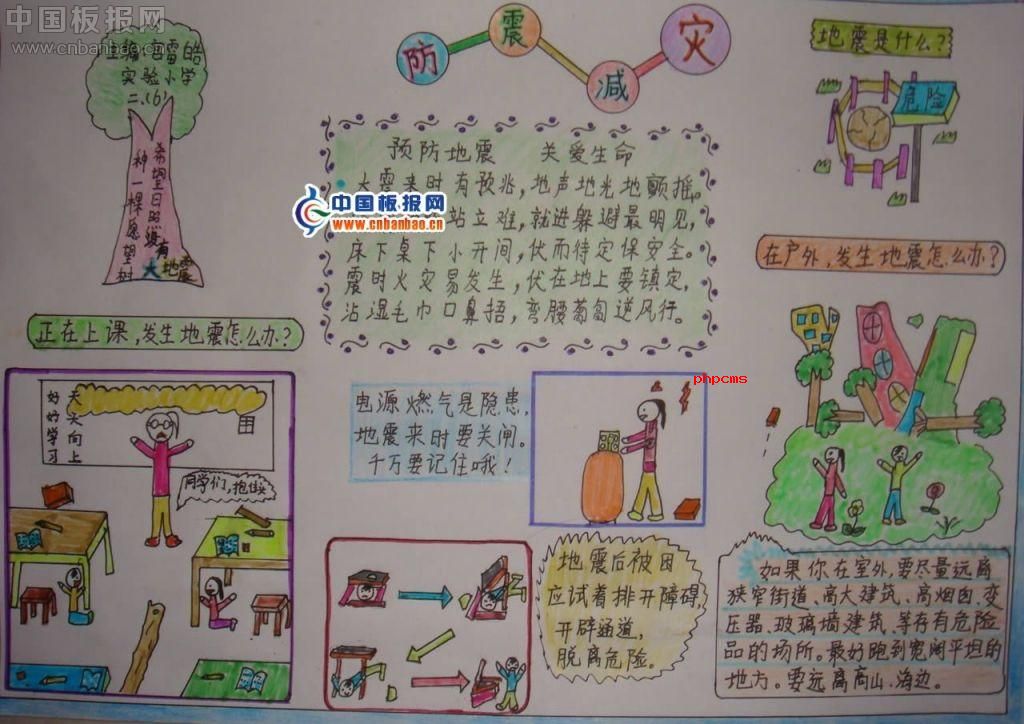 中国板报网
www.cnbanbao.cn
主编:宫雷皓
实验小学
二.(6)
希望日照
种一棵愿望树
有
大地震
防震减灾
地震是什么?
危险
预防地震 关爱生命
大震来时有预兆,地声地光地颤摇。
站立难,就进躲避最明见,
床下桌下小开间,伏而待定保安全。
震时火灾易发生,伏在地上要镇定,
沾湿毛巾口鼻捂,弯腰匍匐逆风行。
中国板报网
www.cnbanbao.cn
在户外,发生地震怎么办?
正在上课,发生地震怎么办?
好好学习
天天向上
同学们,抱住头
电源燃气是隐患,
地震来时要关闸。
千万要记住哦!
phpcms
地震后被困
应试着排开障碍,
开辟通道,
脱离危险。
如果你在室外,要尽量远离
狭窄街道、高大建筑、高烟囱、变
压器、玻璃墙建筑、等存有危险
品的场所。最好跑到宽阔平坦的
地方。要远离高山、海边。